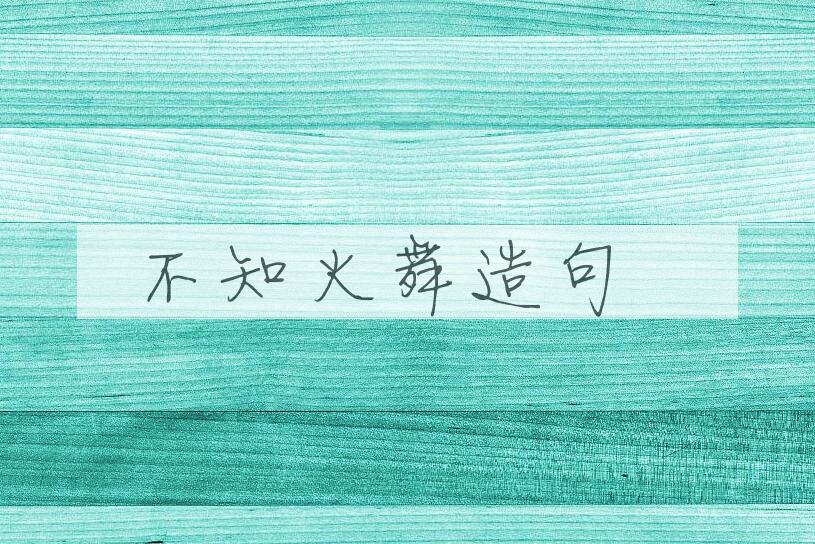 不知火舞造句